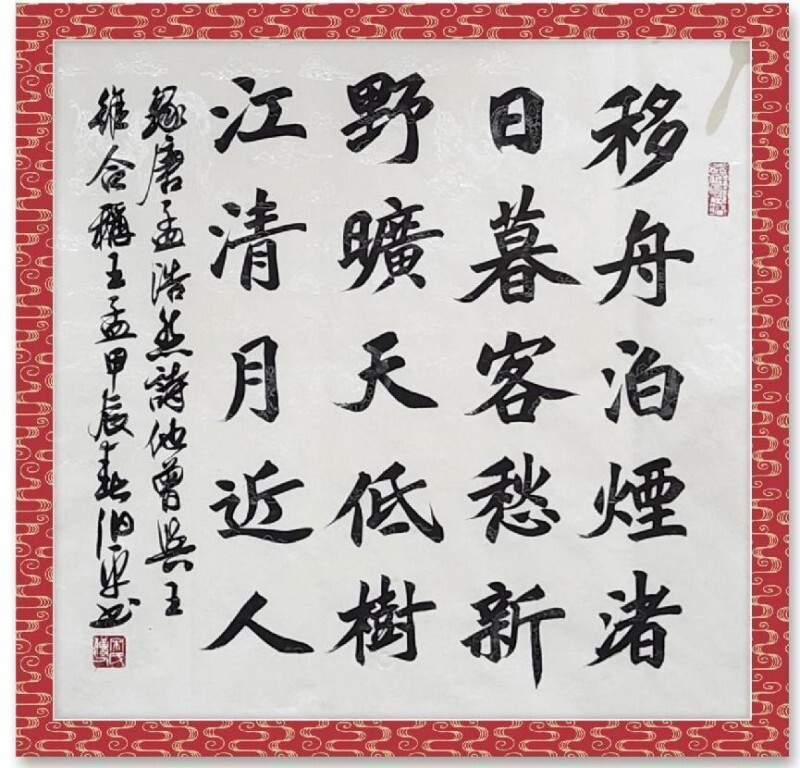 移舟泊煙渚
日暮客愁新
野曠天低樹
江清月近人
錄唐孟浩然詩他曾與王
維合稱王孟甲辰春泊平书